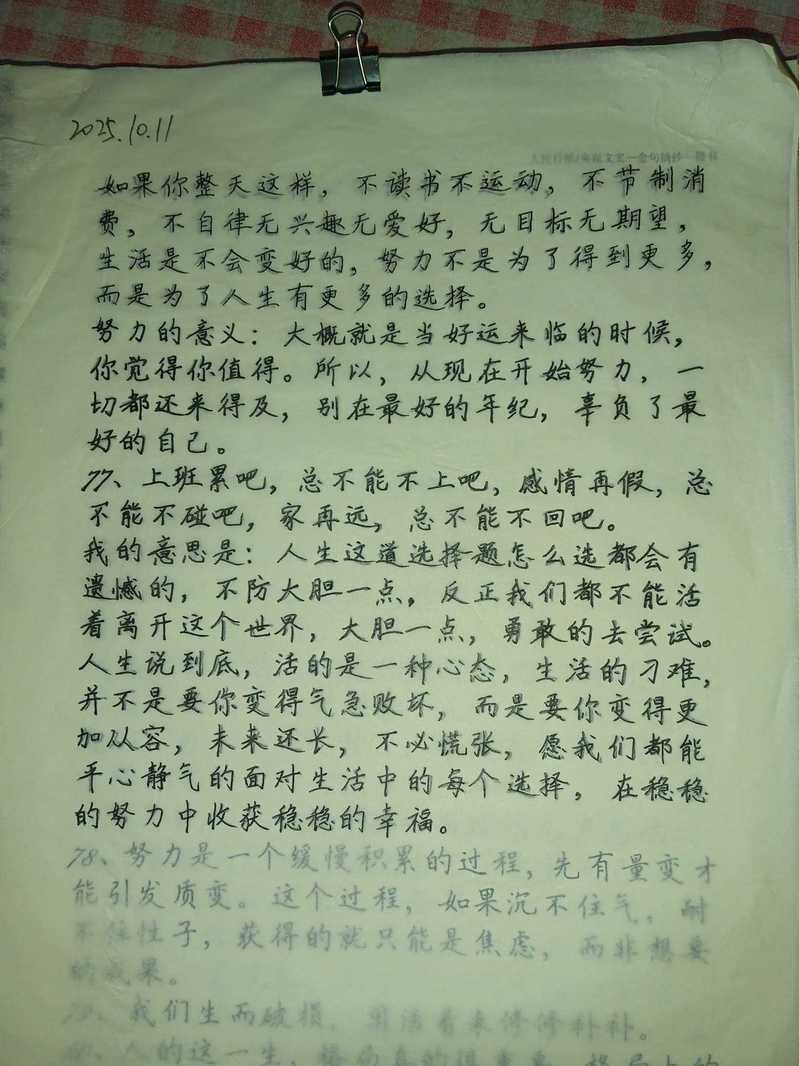 2025.10.11
人民日报/央视文案—金句摘抄—楷书
如果你整天这样，不读书不运动，不节制消
费，不自律无兴趣无爱好，无目标无期望，
生活是不会变好的，努力不是为了得到更多，
而是为了人生有更多的选择。
努力的意义：大概就是当好运来临的时候，
你觉得你值得。所以，从现在开始努力，一
切都还来得及，别在最好的年纪，辜负了最
好的自己。
77、上班累吧，总不能不上吧，感情再假，总
不能不碰吧，家再远，总不能不回吧。
我的意思是：人生这道选择题怎么选都会有
遗憾的，不防大胆一点，反正我们都不能活
着离开这个世界，大胆一点，勇敢的去尝试。
人生说到底，活的是一种心态，生活的刁难，
并不是要你变得气急败坏，而是要你变得更
加从容，未来还长，不必慌张，愿我们都能
平心静气的面对生活中的每个选择，在稳稳
的努力中收获稳稳的幸福。
78、努力是一个缓慢积累的过程，先有量变才
能引发质变。这个过程，如果沉不住气，耐
不住性子，获得的就只能是焦虑，而非想要
的成果。
79、我们生而破损，用活着来修修补补。
人的这一生，格局真的很重要，格局上的